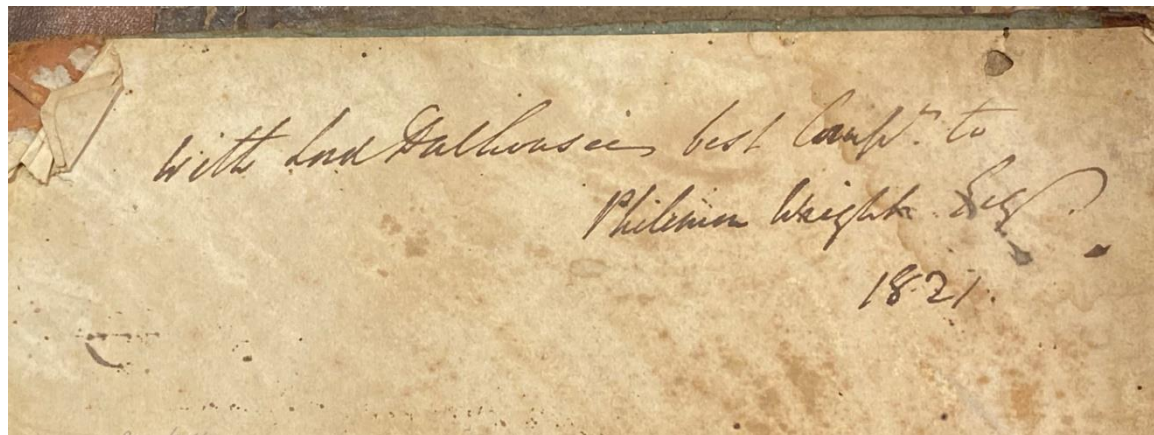 With Lord Dalhousies best Compts. to
Philemon Wright Esqr.
1821.